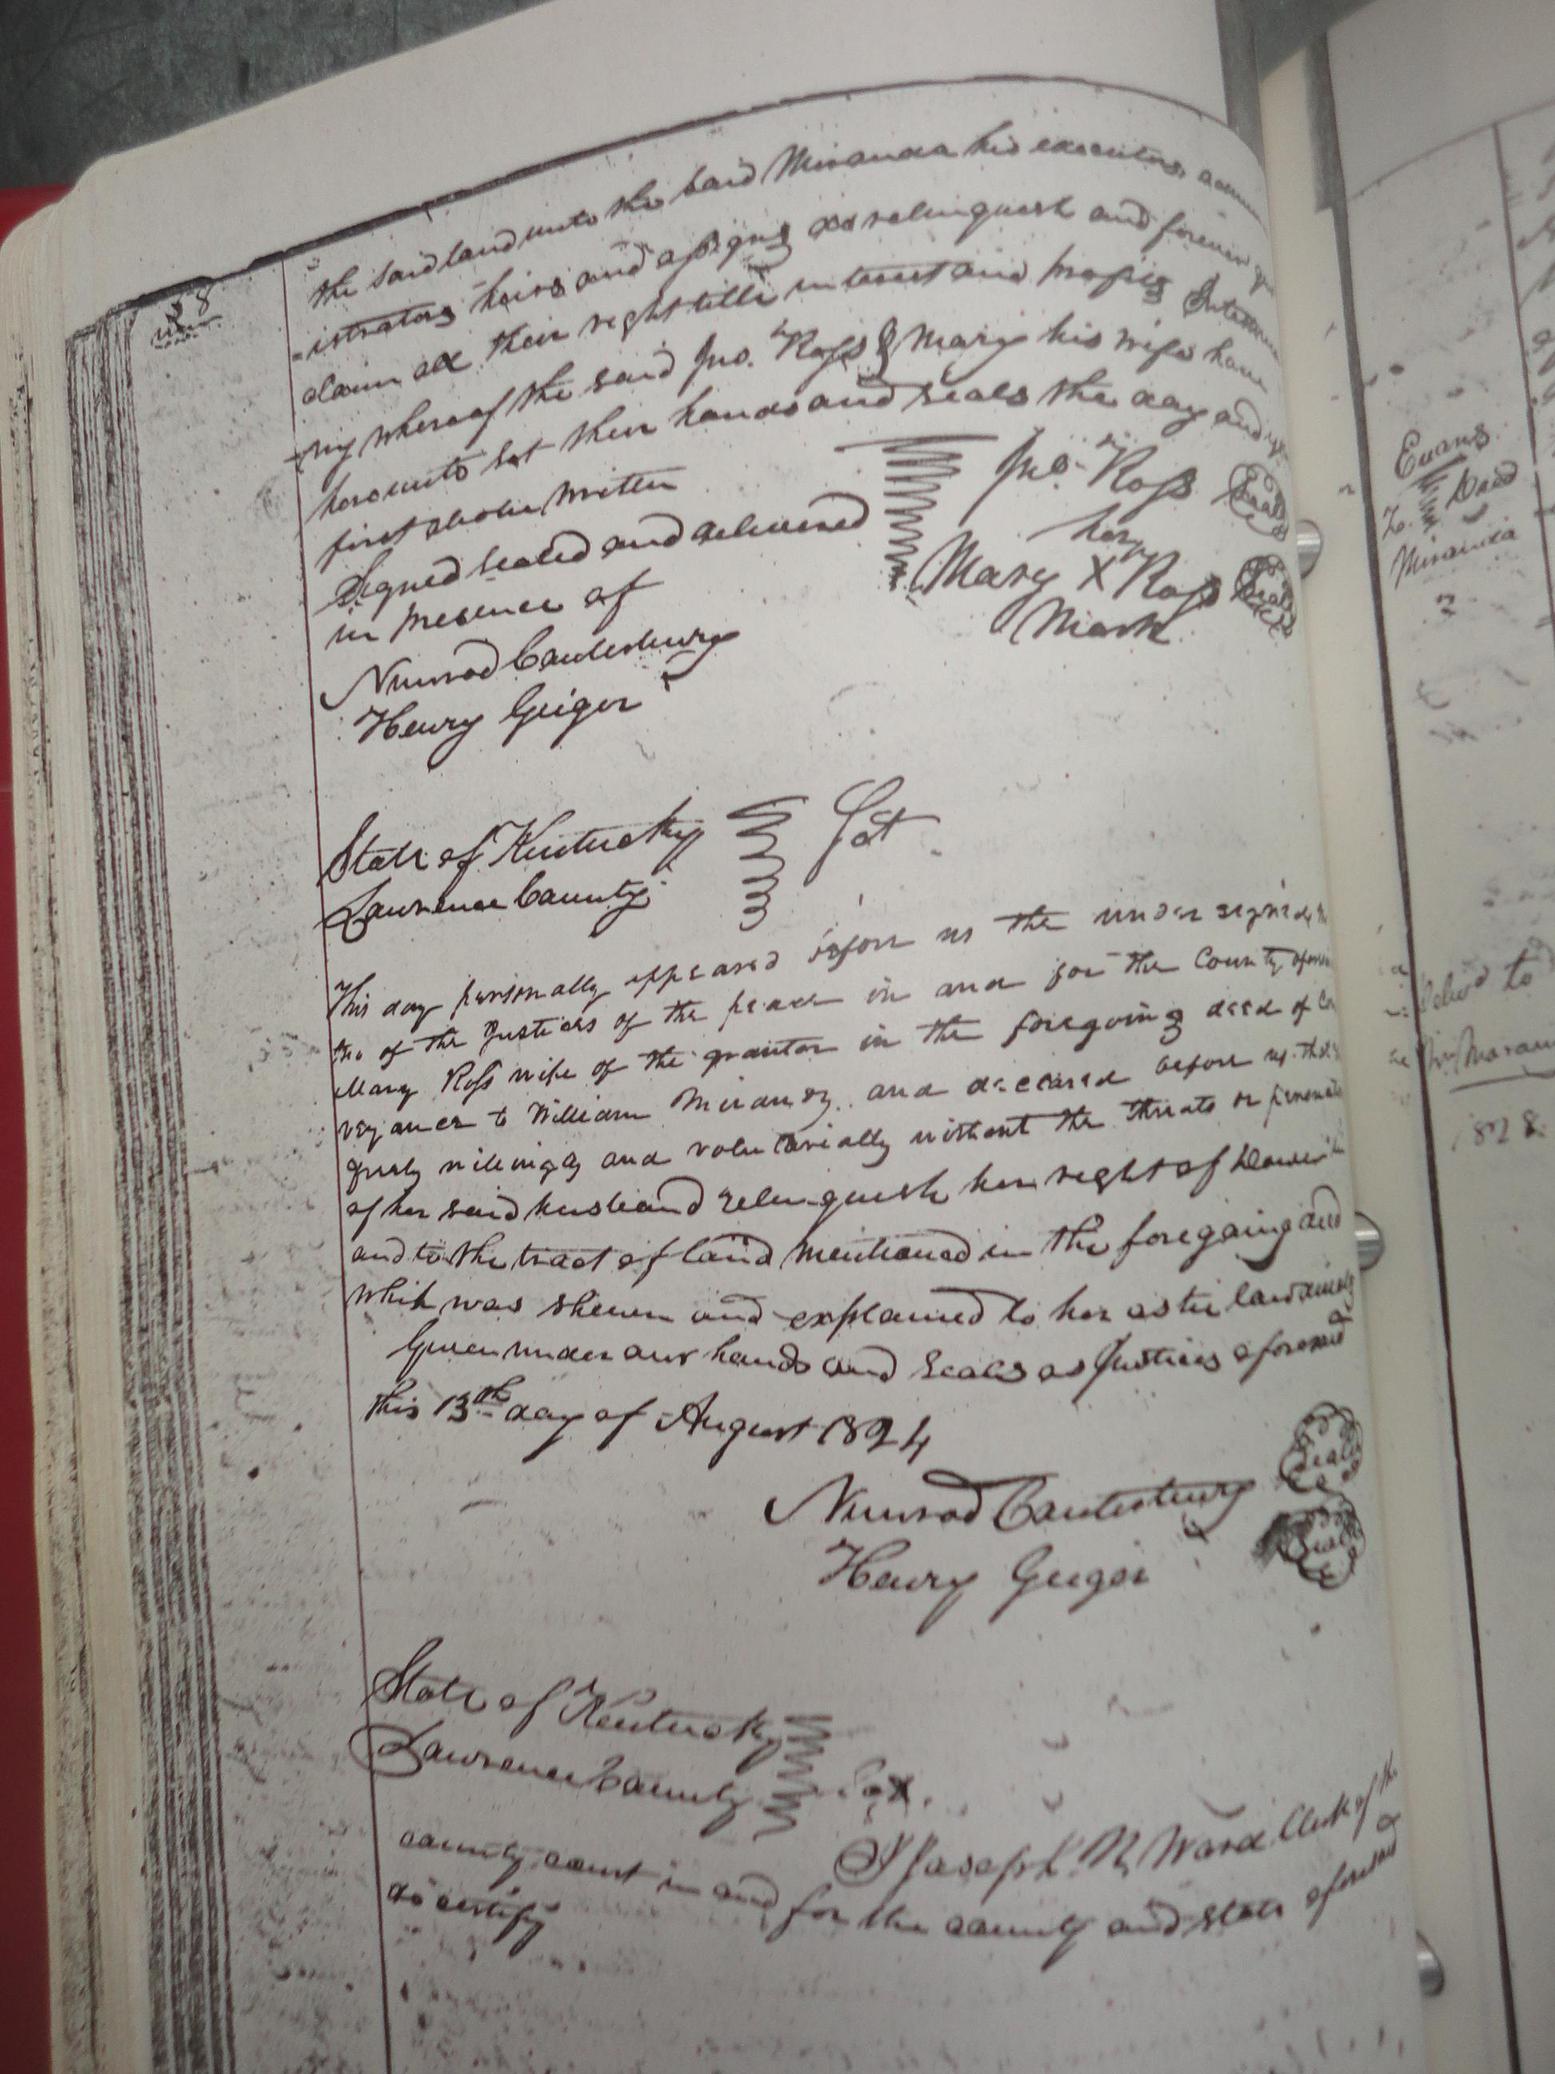 58
the said land unto the said Miranda his executors, admin
-istrators heirs and assigns do relinquish and forever
claim all their right title interest and
-ny whereof the said Jno. Ross & Mary his wife have
hereunto set their hands and seals the day and
first above written
Signed sealed and delivered
in presence of
Nimrod Canterbury
Henry Geiger
Jno. Ross Seal
her
Mary X Ross Seal
Mark
State of Kentucky
Lawrence County
Sct
This day personally appeared before us the undersigned
two of the Justices of the peace in and for the County
Mary Ross wife of the grantor in the foregoing deed of con
veyance to William Mirandy and declared before us that
freely willingly and voluntarially without the threats or
of her said husband relinquish her right of Dower
and to the tract of land mentioned in the foregoing deed
which was shewn and explained to her as the law
Given under our hands and Seals as Justices aforesaid
this 13th day of August 1824
Nimrod Canterbury Seal
Henry Geiger Seal
State of Kentucky
Lawrence County Sct.
I Joseph R Ward Clerk of the
county court in and for the county and state aforesaid
do certify
Evans
To Deed
Miranda
Delvd to
Wm
1828